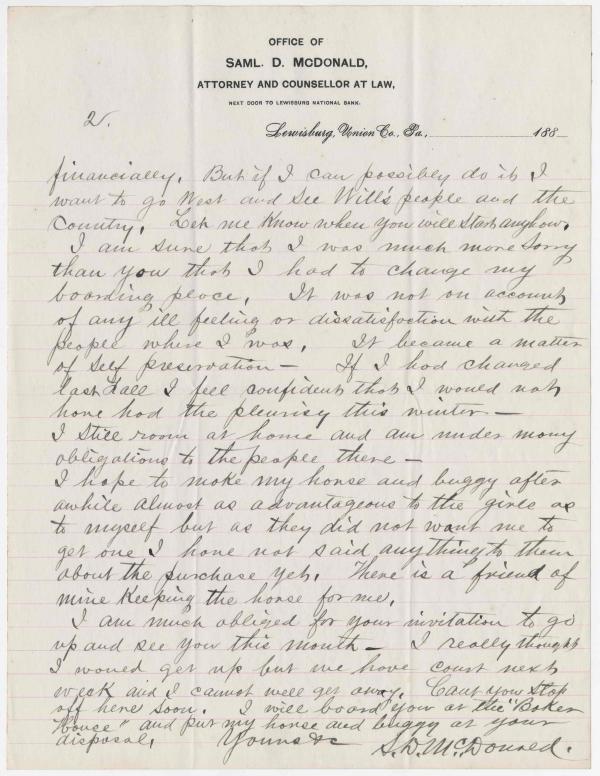 OFFICE OF
SAML. D. McDONALD,
ATTORNEY AND COUNSELLOR AT LAW,
NEXT DOOR TO LEWISBURG NATIONAL BANK.
2.
Lewisburg, Union Co., Pa., 188
financially. But if I can possibly do it I
want to go West and see Will's people and the
Country. Let me know when you will start anyhow.
I am sure that I was much more sorry
than you that I had to change my
boarding place. It was not on account
of any ill feeling or dissatisfaction with the
people where I was. It became a matter
of self preservation — If I had changed
last Fall I feel confident that I would not
have had the pleurisy this winter —
I still room at home and am under many
obligations to the people there —
I hope to make my horse and buggy after
awhile almost as advantageous to the girls as
to myself but as they did not want me to
get one I have not said anything to them
about the purchase yet. There is a friend of
mine keeping the horse for me.
I am much obliged for your invitation to go
up and see you this month — I really thought
I would get up but we have court next
week and I cannot well get away. Cant you stop
off here soon. I will board you at the "Baker
House" and put my horse and buggy at your
disposal. Yours &c S. D. McDonald.